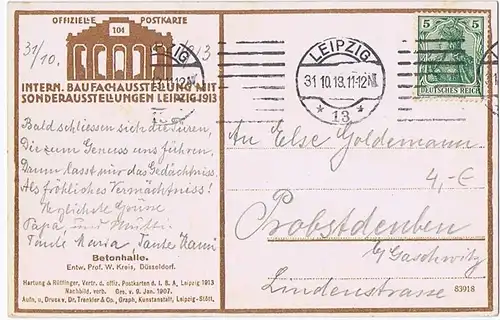 OFFIZIELLE POSTKARTE
104
31/10. 1913
INTERN. BAUFACHAUSSTELLUNG MIT
SONDERAUSSTELLUNGEN LEIPZIG 1913
LEIPZIG
31.10.13.11-12N.
* 13 *
5 5
DEUTSCHES REICH
Bald schliessen sich die Türen,
Die zum Genuss uns führen,
Dann lasst nur das Gedächtniss,
Als fröhliches Vermächtniss!
Herzlichste Grüsse
Papa, und Mutti.
Tante Maria, Tante Hanni
Betonhalle.
Entw. Prof. W. Kreis, Düsseldorf.
Hartung & Rüttinger, Vertr. d. offiz. Postkarten d. I. B. A. Leipzig 1913
Nachbild. verb. Ges. v. 9. Jan. 1907.
Aufn. u. Druck v. Dr. Trenkler & Co., Graph. Kunstanstalt, Leipzig-Stött.
An Else Goldemann
4,-€
Probstdeuben
b/ Gaschwitz
Lindenstrasse
83918